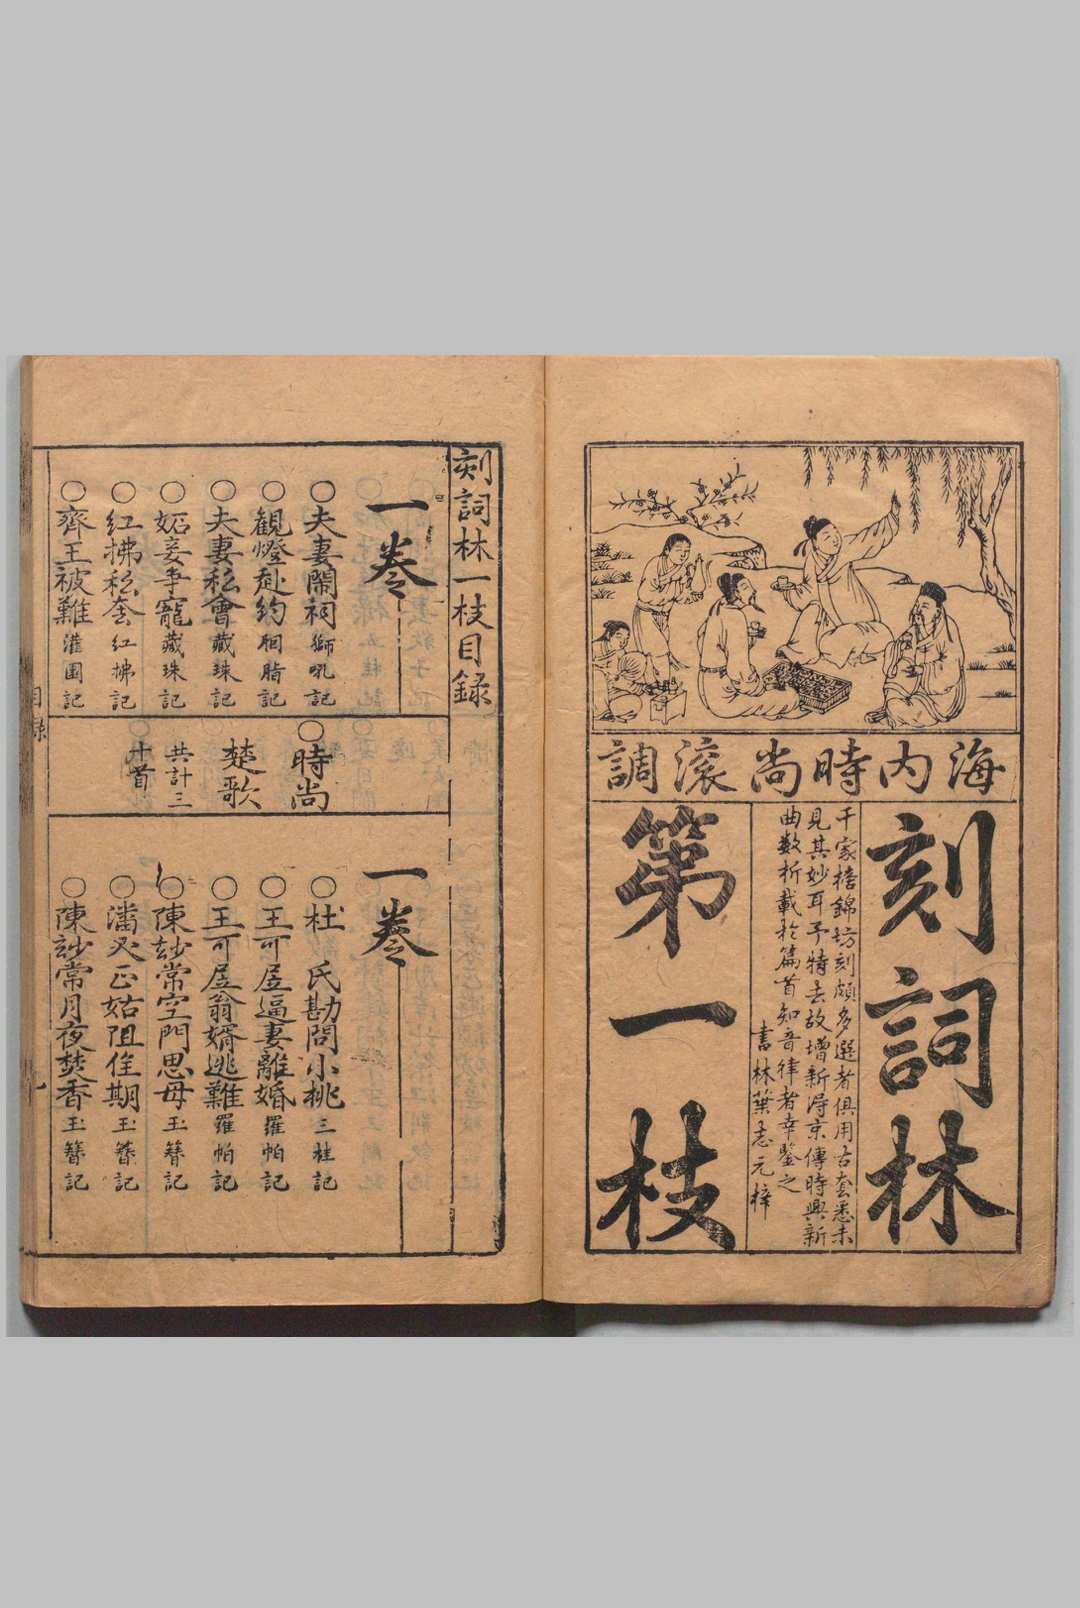 海內時尚滾調
刻詞林
千家摛錦坊刻頗多選者俱用古套悉未
見其妙耳予特去故增新淂京傳時興新
曲数析載於篇首知音律者幸鑒之
書林葉志元梓
第一枝
刻詞林一枝目録
一卷
○夫妻鬧祠 獅吼記
○観燈赴約 胭脂記
○夫妻私會 藏珠記
○妬妾爭寵 藏珠記
○紅拂私奔 紅拂記
○齊王被難 灌園記
○時尚
楚歌
共計三
十首
一卷
○杜氏勘問小桃 三桂記
○王可居逼妻離婚 羅帕記
○王可居翁婿逃難 羅帕記
○陳妙常空門思母 玉簪記
○潘必正姑阻佳期 玉簪記
○陳妙常月夜焚香 玉簪記
目録